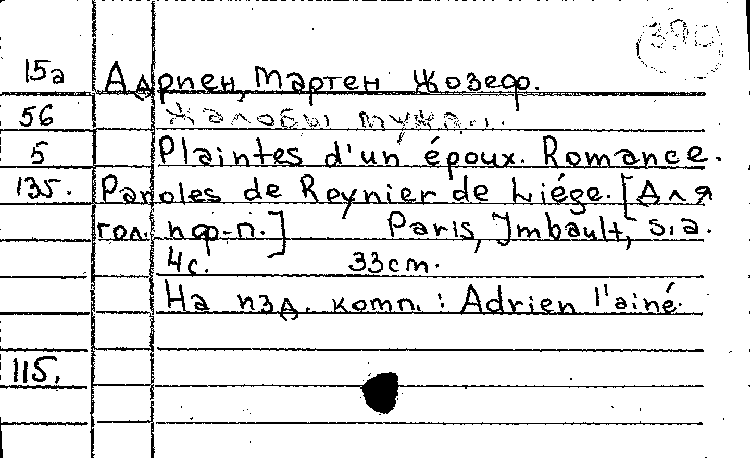 390
15а Адриен, Мартен Жозеф.
56 Жалобы мужа...
5 Plaintes d'un époux. Romance.
135. Paroles de Reynier de Liége. [Для
гол. и ф-п.] Paris, Imbault, s.a.
4с. 33cm.
На изд. комп.: Adrien l'ainé.
115.